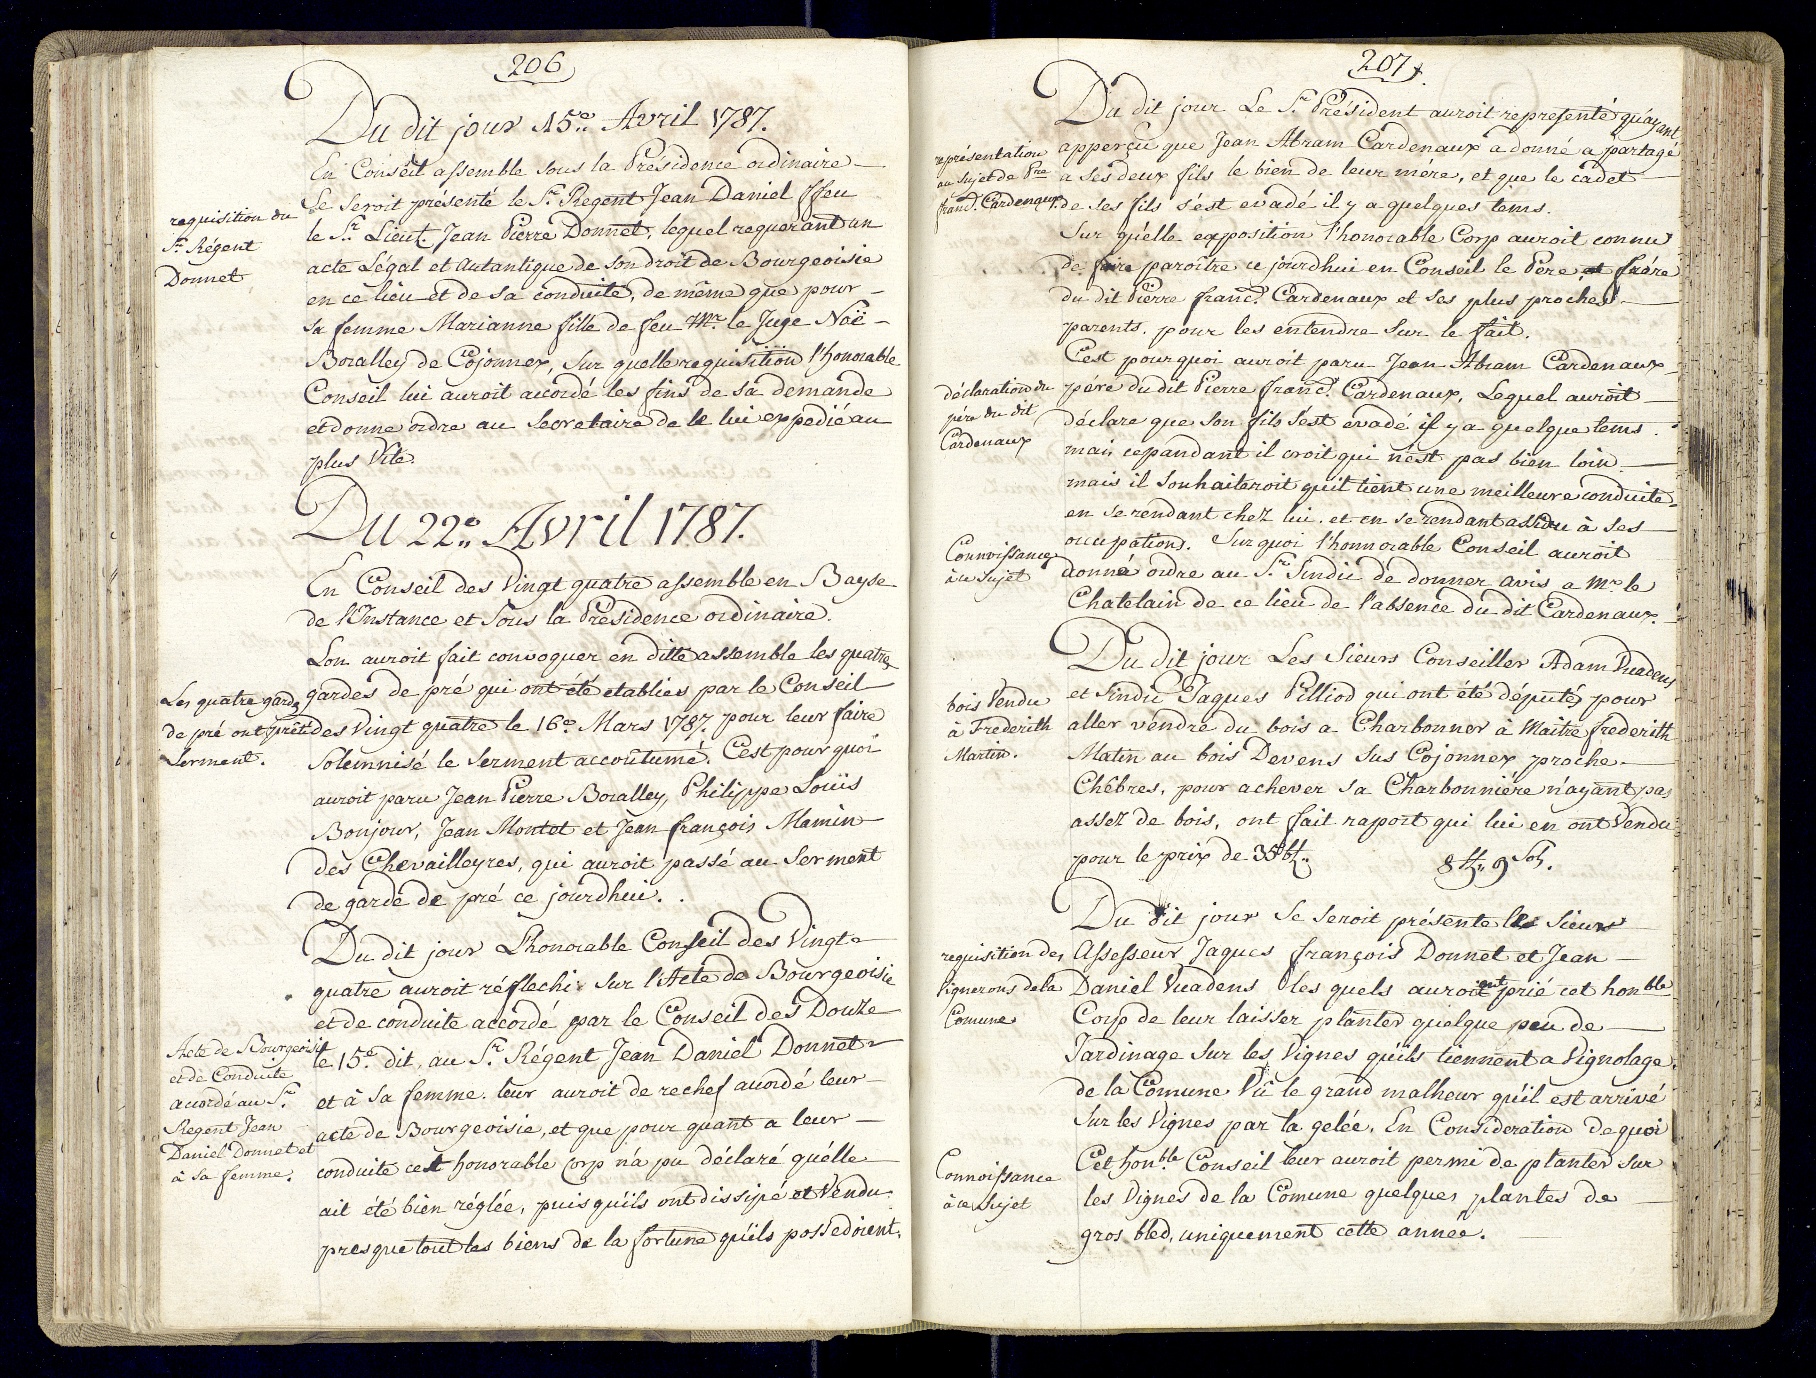 206
Du dit jour 15e. Avril 1787.
En Conseil assemble sous la Présidence ordinaire
Se seroit présenté le Sr. Regent Jean Daniel ffeu
requisition du
Sr. Régent
Donnet
le Sr. Lieut. Jean Pierre Donnet, lequel requerant un
acte Légal et Autantique de son droit de Bourgeoisie
en ce lieu et de sa conduite, de même que pour
sa femme Marianne fille de feu Mr. le Juge Noë
Boralley de Cojonnex, Sur quelle requisition l'honorable
Conseil lui auroit accordé les fins de sa demande
et donne ordre au Secretaire de le lui expedié au
plus Vite.
Du 22e. Avril 1787.
En Conseil des Vingt quatre assemble en Bayse
de l'Instance et sous la Présidence ordinaire.
Lon auroit fait convoquer en ditte assemble les quatre
Les quatre garde
de pré ont prêté
Serment.
gardes de pré qui ont été etablies par le Conseil
des Vingt quatre le 16e. Mars 1787. pour leur faire
Solemnisé le Serment accoûtumé. C'est pourquoi
auroit paru Jean Pierre Boralley, Philippe Louïs
Bonjour, Jean Montet et Jean françois Mamin
dès Chevailleyres, qui auroit passé au Serment
de garde de pré ce jourdhui.
Du dit jour L'honorable Conseil des Vingt
quatre auroit réflechi Sur l'Acte de Bourgeoisie
et de conduite accordé par le Conseil des Douze
Acte de Bourgeoisie
et de Conduite
accordé au Sr.
Regent Jean
Daniel Donnet et
à sa femme.
le 15e. dit, au Sr. Régent Jean Daniel Donnet
et à sa femme. leur auroit de rechef accordé leur
acte de Bourgeoisie, et que pour quant a leur
conduite cest honorable Corp n'a pu déclaré qu'elle
ait été bien réglée, puis qu'ils ont dissipé et Vendu
presque tout les biens de la fortune qu'ils possedoient.
207
Du dit jour Le Sr. Président auroit representé qu'ayant
représentation
au sujet de Pre
franç. Cardenaux
apperçu que Jean Abram Cardenaux a donné a partagé
a ses deux fils le bien de leur mére, et que le cadet
de ses fils s'est evadé il y a quelques tems.
Sur qu'elle exposition l'honorable Corp auroit connu
de faire paroître ce jourdhui en Conseil le Pere, et frére
du dit Pierre franç. Cardenaux et ses plus proches
parents. pour les entendre Sur le fait.
C'est pourquoi auroit paru Jean Abram Cardenaux
déclaration du
pére du dit
Cardenaux
pére du dit Pierre franç. Cardenaux, Lequel auroit
déclare que son fils s'est evadé il y a quelque tems
mais cepandant il croit qui n'est pas bien loin
mais il Souhaiteroit qu'il tient une meilleure conduite
en se rendant chez lui. et en se rendant assidu à ses
occupations. Sur quoi l'honnorable Conseil auroit
Connoissance
à ce sujet
donné ordre au Sr. Sindic de donner avis a Mr. le
Chatelain de ce lieu de l'absence du dit Cardenaux.
Du dit jour Les Sieurs Conseiller Adam Vuadens
bois Vendu
à Frederith
Martin.
et Sindic Jaques Pilliod qui ont été députés pour
aller vendre du bois a Charbonner à Maitre frederith
Matin au bois Devens Sus Cojonnex proche
Chêbres, pour achever sa Charbonniére n'ayant pas
assez de bois, ont fait raport qui lui en ont Vendu
pour le prix de 35 bt.
8 ft. 9 Sols.
Du dit jour Se seroit présente les Sieurs
requisition des
Vignerons de la
Comune
Assesseur Jaques françois Donnet et Jean
Daniel Vuadens les quels auroient prié cet honble
Corp de leur laisser planter quelque peu de
Jardinage Sur les Vignes qu'ils tiennent a Vignolage
de la Comune Vû le grand malheur qu'il est arrivé
Sur les Vignes par la gelée, En Consideration de quoi
Connoissance
à ce Sujet
Cet honble. Conseil leur auroit permi de planter Sur
les Vignes de la Comune quelques plantes de
gros bled, uniquement cette année.